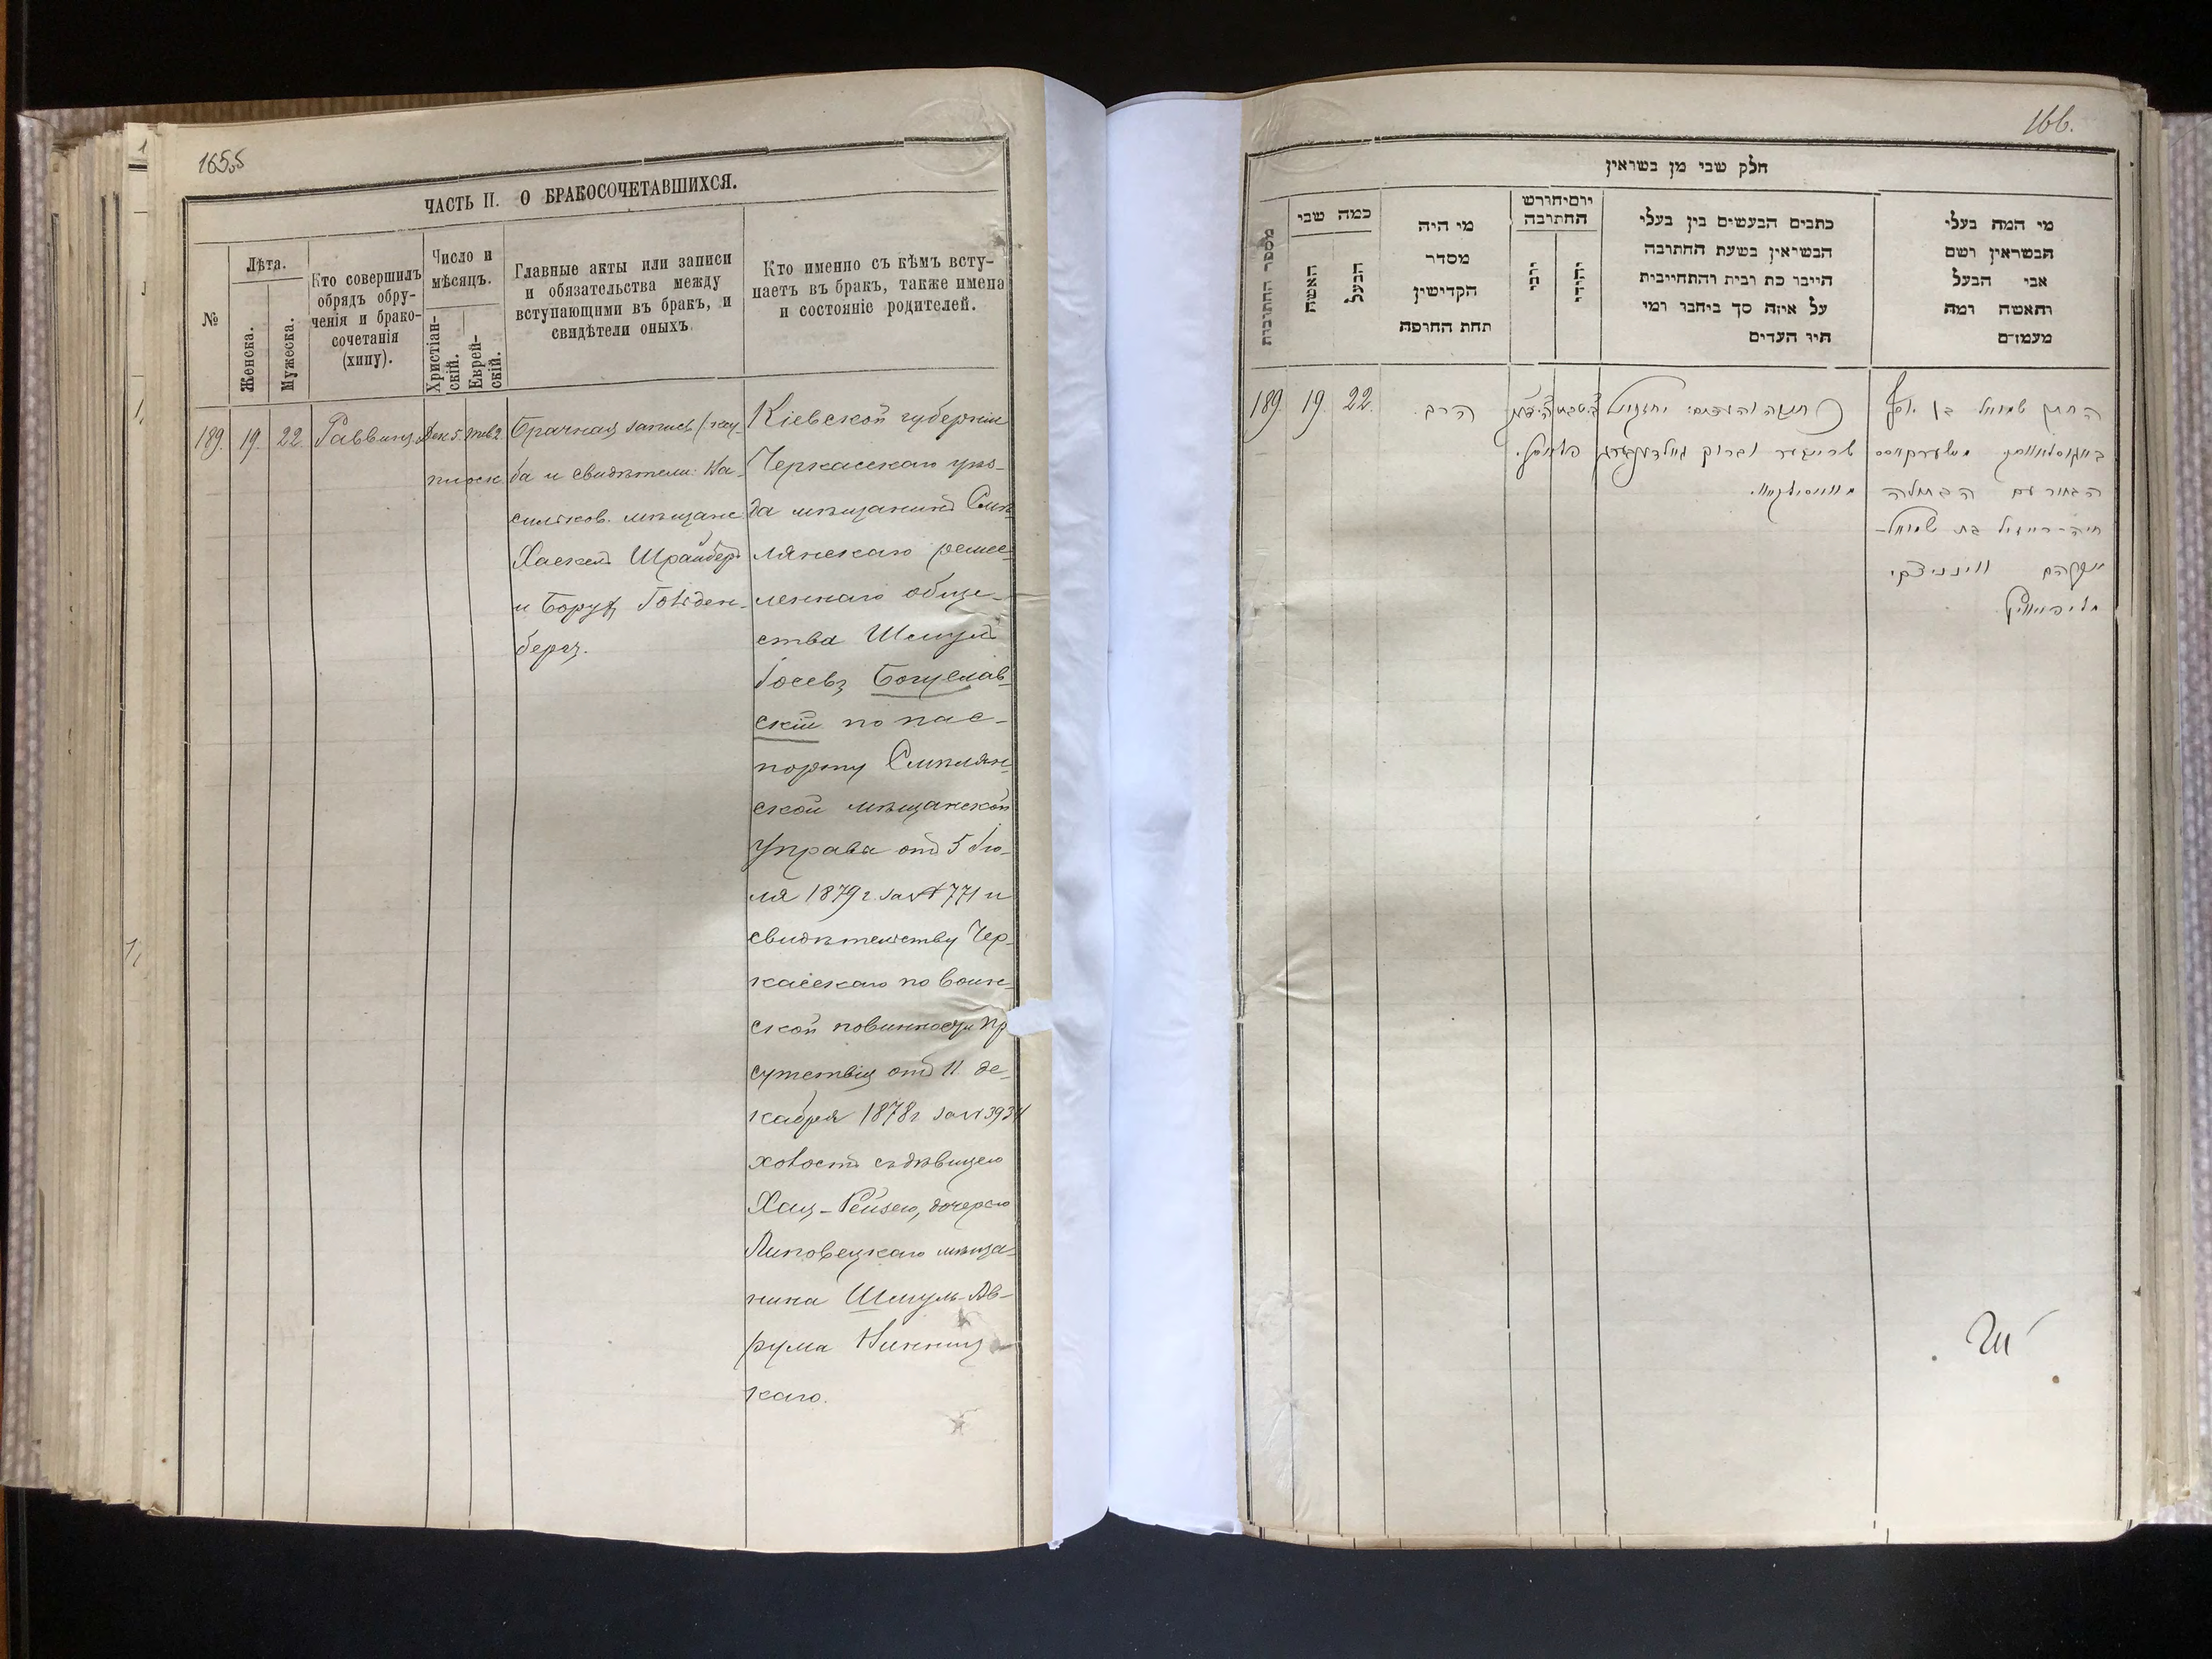 165
ЧАСТЬ II. О БРАКОСОЧЕТАВШИХСЯ.
№
Лѣта.
Женска.
Мужеска.
Кто совершилъ
обрядъ обру-
ченія и брако-
сочетанія
(хипу).
Число и
мѣсяцъ.
Христіан-
скій.
Еврей-
скій.
Главные акты или записи
и обязательства между
вступающими въ бракъ, и
свидѣтели оныхъ.
Кто именно съ кѣмъ всту-
паетъ въ бракъ, также имена
и состояніе родителей.
189. 19. 22. Раввинъ. Дек 5. Тев 2.
Брачная запись
ба и свидѣтели: Ва-
сильков. мѣщане
Хаскель Шрайберъ
и Борухъ Гольден-
бергъ.
Кіевской губерніи
Черкасскаго уѣз-
да мѣщанинъ Смѣ-
лянскаго ремес-
леннаго обще-
ства Шмуль
Іосевъ Богуслав-
скій по пас-
порту Смѣлян-
ской мѣщанской
Управы отъ 5 Ію-
ля 1879 г. за № 771 и
свидѣтельству Чер-
касскаго по воин-
ской повинности Пр
сутствія отъ 11 де-
кабря 1878 г. за № 3934
холостъ съ дѣвицею
Хая-Рейзею, дочерью
Липовецкаго мѣща-
нина Шмуль-Ав-
рума Винниц
каго.
166.
חלק שני מן נשואין
מספר החתונות
כמה שני
האשה
הבעל
מי היה
מסדר
הקדישין
תחת החופה
יום וחורש
החתונה
כתבים הנעשים בין בעלי
הנשואין בשעת החתונה
היינו כת ובית והתחייבות
על איזה סך ניתנו ומי
היו העדים
מי המה בעלי
הנשואין ושם
אבי הבעל
והאשה ומה
מעמדם
189. 19. 22. הרב.
החתן שמואל בן יוסף
הבחור עם הבתולה
חיה-רייזיל בת שמואל-
אברהם וויניצקי